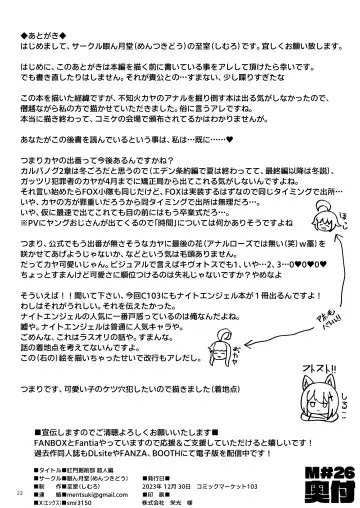 ◆あとがき◆
はじめまして、サークル眼ん月堂(めんつきどう)の至室(しむろ)です。宜しくお願い致します。
はじめに、このあとがきは本編を描く前に書いている事をアレして頂けたら幸いです。
でも書き直したりはしません。それが貴公との…すまない、少し喋りすぎたな
この本を描いた経緯ですが、不知火カヤのアナルを掘り倒す本は出る気がしなかったので、
僭越ながら私の方で描かせていただきました。俗に言うアレですね。
本当に描き終わって、コミケの会場で頒布されてるかはわかりませんが。
あなたがこの後書を読んでいるという事は、私は…既に……♥
つまりカヤの出番って今後あるんですかね?
カルバノグ2章は冬ごろだと思うので(エデン条約編で夏は終わってて、最終編以降は冬説)、
ガッツリ犯罪者のカヤが4月までに矯正局から出てこれる気がしないんですよね。
それ言い始めたらFOX小隊も同じだけど、FOXは実装するはずなので同じタイミングで出所…
いや、カヤの方が罪重いだろうから同タイミングで出所は無理だろ…。
いや、仮に最速で出てこれても目の前にはもう卒業式だろ…。
※PVにヤングおじさんが出てくるので「時間」については何かありそうですよね
つまり、公式でもう出番が無さそうなカヤに最後の花(アナルローズでは無い(笑)w薔)を
咲かせてあげようじゃないか、などという気は毛頭ありません。
だってカヤ可愛いじゃん。ビジュアルで言えばキヴォトスでも1、いや…2、3…0♥0♥0♥
ちょっとすまんけど可愛さに順位つけるのは失礼じゃないですか?やめなよ
そういえば!!聞いて下さい、今回C103にもナイトエンジェル本が1冊出るんですよ!
私はそれがうれしい。それを伝えたかった。
ナイトエンジェルの人気に一番戸惑っているのは俺なんだよね。
嘘や。ナイトエンジェルは普通に人気キャラや。
ごめんな、これはラスオリの話や。すまんな。
話の着地点を考えてないんですよ。
この(右の)絵を描いちゃったせいで改行もアレだし。
つまりです、可愛い子のケツ穴犯したいので描きました(着地点)
■宣伝しますのでご清聴よろしくお願いいたします■
FANBOXとFantiaやっていますので応援&ご支援していただけると嬉しいです!
過去作同人誌もDLsiteやFANZA、BOOTHにて電子版を配信中です!
■サークル■眼ん月堂(めんつきどう)
■発行日■
■制 作■至室(しむろ)
2023年12月30日 コミックマーケット103
■連 絡■mentsuki@gmail.com
■印 刷■
■X(エックス)■smr3150
株式会社 栄光 様
M#26
奥付
22